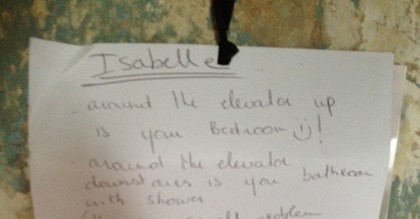 Isabelle
- around the elevator up
is your Bedroom :)!
- around the elevator
downstairs is you bathroom
with shower
problem